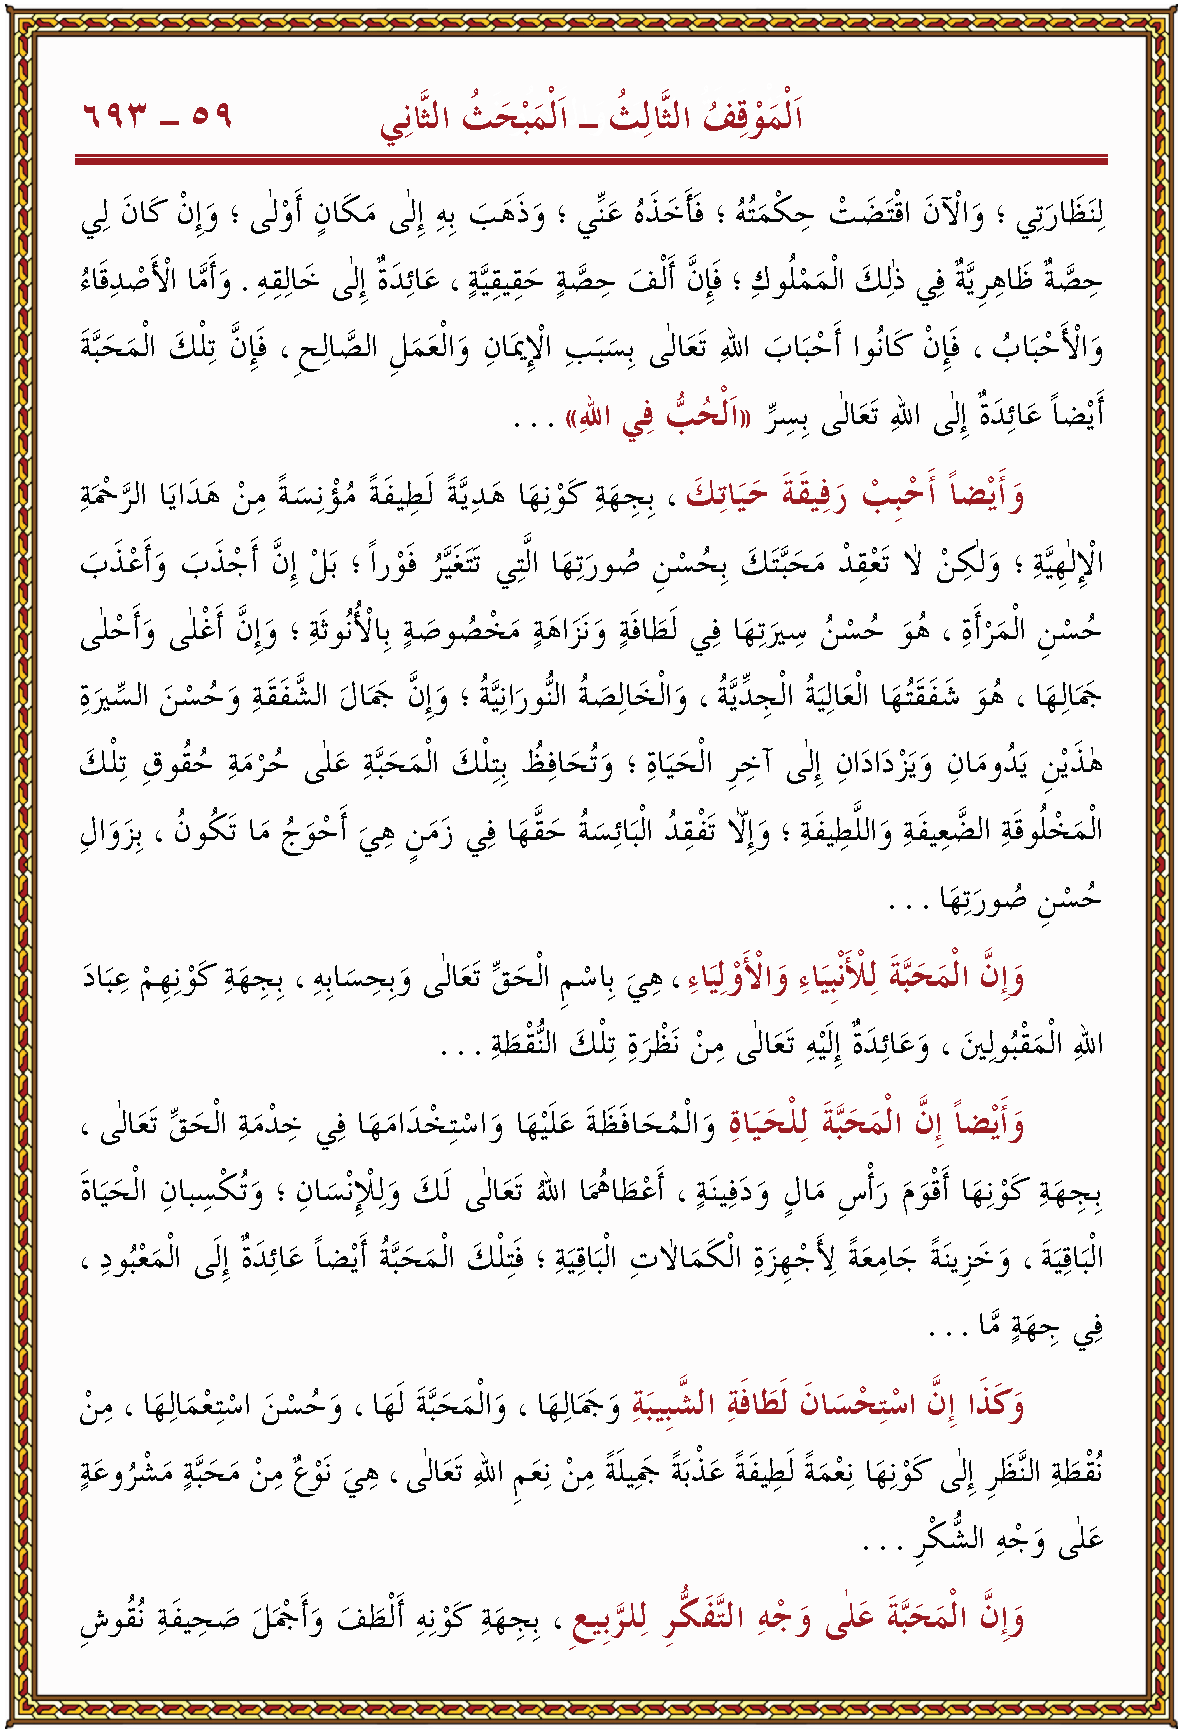 اَلْمَوْقِفُ الثَّالِثُ ــ اَلْمَبْحَثُ الثَّانِي ٥٩ ــ ٦٩٣
لِنَظَارَتِي ؛ وَالْآنَ اقْتَضَتْ حِكْمَتُهُ ؛ فَأَخَذَهُ عَنِّي ؛ وَذَهَبَ بِهِ إِلٰى مَكَانٍ أَوْلٰى ؛ وَإِنْ كَانَ لِي
حِصَّةٌ ظَاهِرِيَّةٌ فِي ذٰلِكَ الْمَمْلُوكِ ؛ فَإِنَّ أَلْفَ حِصَّةٍ حَقِيقِيَّةٍ ، عَائِدَةٌ إِلٰى خَالِقِهِ . وَأَمَّا الْأَصْدِقَاءُ
وَالْأَحْبَابُ ، فَإِنْ كَانُوا أَحْبَابَ اللهِ تَعَالٰى بِسَبَبِ الْإِيمَانِ وَالْعَمَلِ الصَّالِحِ ، فَإِنَّ تِلْكَ الْمَحَبَّةَ
أَيْضاً عَائِدَةٌ إِلٰى اللهِ تَعَالٰى بِسِرِّ «اَلْحُبُّ فِي اللهِ» . . .
وَأَيْضاً أَحْبِبْ رَفِيقَةَ حَيَاتِكَ ، بِجِهَةِ كَوْنِهَا هَدِيَّةً لَطِيفَةً مُؤْنِسَةً مِنْ هَدَايَا الرَّحْمَةِ
الْإِلٰهِيَّةِ ؛ وَلٰكِنْ لَا تَعْقِدْ مَحَبَّتَكَ بِحُسْنِ صُورَتِهَا الَّتِي تَتَغَيَّرُ فَوْراً ؛ بَلْ إِنَّ أَجْذَبَ وَأَعْذَبَ
حُسْنِ الْمَرْأَةِ ، هُوَ حُسْنُ سِيرَتِهَا فِي لَطَافَةٍ وَنَزَاهَةٍ مَخْصُوصَةٍ بِالْأُنُوثَةِ ؛ وَإِنَّ أَغْلٰى وَأَحْلٰى
جَمَالِهَا ، هُوَ شَفَقَتُهَا الْعَالِيَةُ الْجِدِّيَّةُ ، وَالْخَالِصَةُ النُّورَانِيَّةُ ؛ وَإِنَّ جَمَالَ الشَّفَقَةِ وَحُسْنَ السِّيرَةِ
هٰذَيْنِ يَدُومَانِ وَيَزْدَادَانِ إِلٰى آخِرِ الْحَيَاةِ ؛ وَتُحَافِظُ بِتِلْكَ الْمَحَبَّةِ عَلٰى حُرْمَةِ حُقُوقِ تِلْكَ
الْمَخْلُوقَةِ الضَّعِيفَةِ وَاللَّطِيفَةِ ؛ وَإِلَّا تَفْقِدُ الْبَائِسَةُ حَقَّهَا فِي زَمَنٍ هِيَ أَحْوَجُ مَا تَكُونُ ، بِزَوَالِ
حُسْنِ صُورَتِهَا . . .
وَإِنَّ الْمَحَبَّةَ لِلْأَنْبِيَاءِ وَالْأَوْلِيَاءِ ، هِيَ بِاسْمِ الْحَقِّ تَعَالٰى وَبِحِسَابِهِ ، بِجِهَةِ كَوْنِهِمْ عِبَادَ
اللهِ الْمَقْبُولِينَ ، وَعَائِدَةٌ إِلَيْهِ تَعَالٰى مِنْ نَظْرَةِ تِلْكَ النُّقْطَةِ . . .
وَأَيْضاً إِنَّ الْمَحَبَّةَ لِلْحَيَاةِ وَالْمُحَافَظَةَ عَلَيْهَا وَاسْتِخْدَامَهَا فِي خِدْمَةِ الْحَقِّ تَعَالٰى ،
بِجِهَةِ كَوْنِهَا أَقْوَمَ رَأْسِ مَالٍ وَدَفِينَةٍ ، أَعْطَاهُمَا اللهُ تَعَالٰى لَكَ وَلِلْإِنْسَانِ ؛ وَتُكْسِبَانِ الْحَيَاةَ
الْبَاقِيَةَ ، وَخَزِينَةً جَامِعَةً لِأَجْهِزَةِ الْكَمَالَاتِ الْبَاقِيَةِ ؛ فَتِلْكَ الْمَحَبَّةُ أَيْضاً عَائِدَةٌ إِلَى الْمَعْبُودِ ،
فِي جِهَةٍ مَّا . . .
وَكَذَا إِنَّ اسْتِحْسَانَ لَطَافَةِ الشَّبِيبَةِ وَجَمَالِهَا ، وَالْمَحَبَّةَ لَهَا ، وَحُسْنَ اسْتِعْمَالِهَا ، مِنْ
نُقْطَةِ النَّظَرِ إِلٰى كَوْنِهَا نِعْمَةً لَطِيفَةً عَذْبَةً جَمِيلَةً مِنْ نِعَمِ اللهِ تَعَالٰى ، هِيَ نَوْعٌ مِنْ مَحَبَّةٍ مَشْرُوعَةٍ
عَلٰى وَجْهِ الشُّكْرِ . . .
وَإِنَّ الْمَحَبَّةَ عَلٰى وَجْهِ التَّفَكُّرِ لِلرَّبِيعِ ، بِجِهَةِ كَوْنِهِ أَلْطَفَ وَأَجْمَلَ صَحِيفَةِ نُقُوشِ